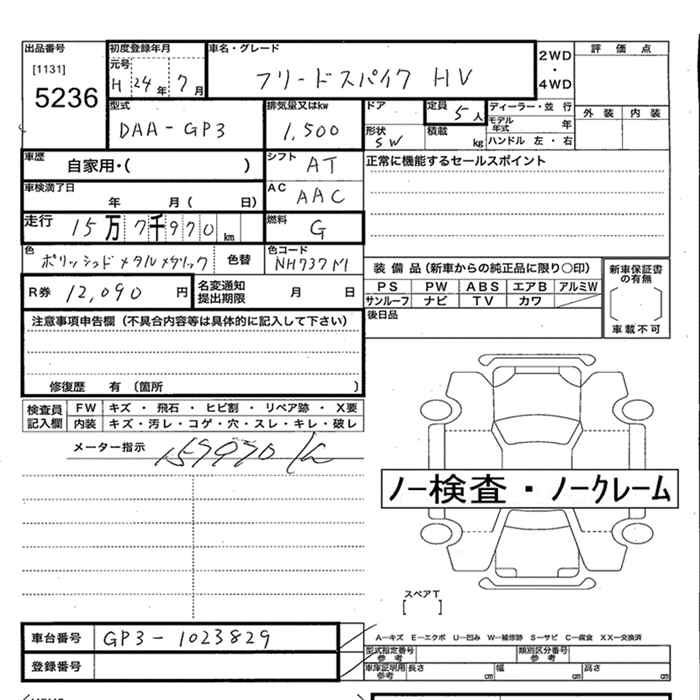 出品番号
[1131]
5236
初度登録年月
元号
H 24年 7月
車名・グレード
フリードスパイク HV
2WD
・
4WD
評価点
外装 内装
型式
DAA-GP3
排気量又はkw
1,500
ドア
形状
SW
定員
5人
積載
kg
ディーラー・並行
モデル年式 年
ハンドル 左・右
車歴
自家用・( )
シフト
AT
正常に機能するセールスポイント
車検満了日
年 月( 日)
AC
AAC
走行
15万7千970km
燃料
G
色
ポリッシュドメタルメタリック
色替
色コード
NH737M
装備品(新車からの純正品に限り○印)
PS PW ABS エアB アルミW
サンルーフ ナビ TV カワ
新車保証書の有無
[ ]
車載不可
R券 12,090円
名変通知提出期限
月 日
後日品
注意事項申告欄(不具合内容等は具体的に記入して下さい)
修復歴 有 〔箇所 〕
検査員記入欄
FW キズ ・ 飛石 ・ ヒビ割 ・ リペア跡 ・ X要
内装 キズ・汚レ・コゲ・穴・スレ・キレ・破レ
メーター指示
157970 K
ノー検査・ノークレーム
スペアT
[ ]
車台番号
GP3-1023829
登録番号
A-キズ E-エクボ U-凹み W-補修跡 S-サビ C-腐食 XX-交換済
型式指定番号
参考
類別区分番号
参考
車庫証明用
参考
長さ cm 幅 cm 高さ cm